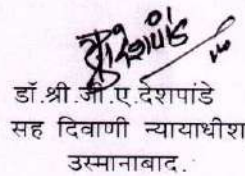 डॉ.श्री.जी.ए.देशपांडे
सह दिवाणी न्यायाधीश
उस्मानाबाद.